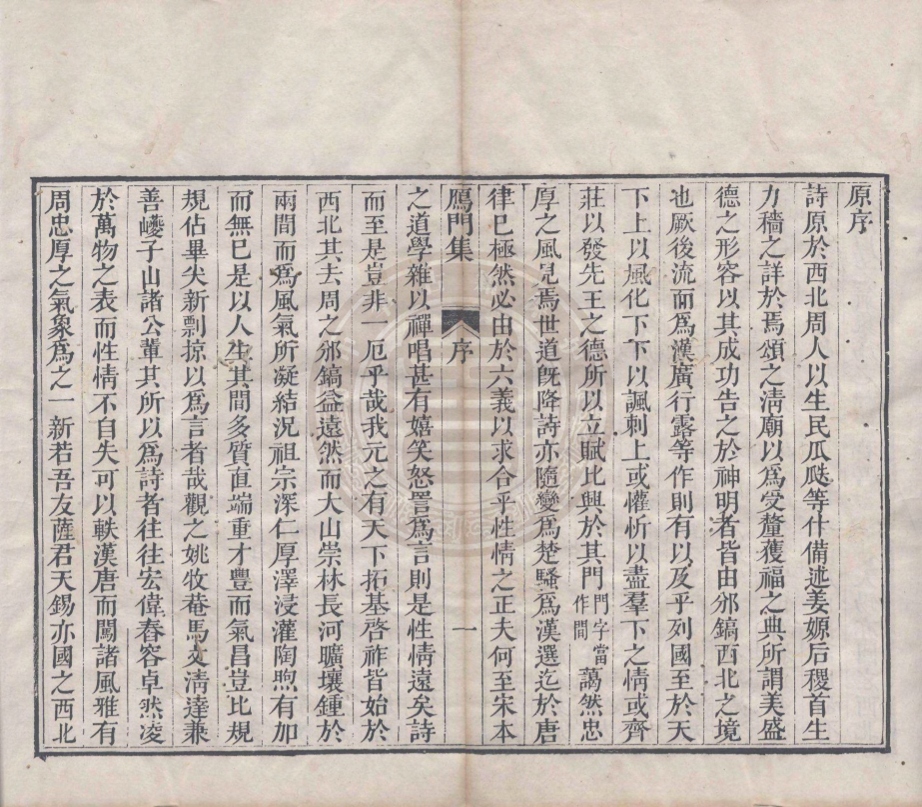 原序
詩原於西北周人以生民瓜瓞等什備述姜嫄后稷首生
力穡之詳於焉頌之淸廟以爲受釐獲福之典所謂美盛
德之形容以其成功告之於神明者皆由邠鎬西北之境
也厥後流而爲漢廣行露等作則有以及乎列國至於天
下上以風化下下以諷刺上或懽忻以盡羣下之情或齊
莊以發先王之德所以立賦比興於其門門字當作間藹然忠
厚之風見焉世道旣降詩亦隨變爲楚騷爲漢選迄於唐
律已極然必由於六義以求合乎性情之正夫何至宋本
鴈門集 序 一
之道學雜以禪唱甚有嬉笑怒詈爲言則是性情遠矣詩
而至是豈非一厄乎哉我元之有天下拓基啓祚皆始於
西北其去周之邠鎬益遠然而大山崇林長河曠壤鍾於
兩間而爲風氣所凝結況祖宗深仁厚澤浸灌陶煦有加
而無已是以人生其間多質直端重才豐而氣昌豈比規
規佔畢尖新剽掠以爲言者哉觀之姚牧菴馬文淸達兼
善巙子山諸公輩其所以爲詩者往往宏偉舂容卓然凌
於萬物之表而性情不自失可以軼漢唐而闖諸風雅有
周忠厚之氣象爲之一新若吾友薩君天錫亦國之西北